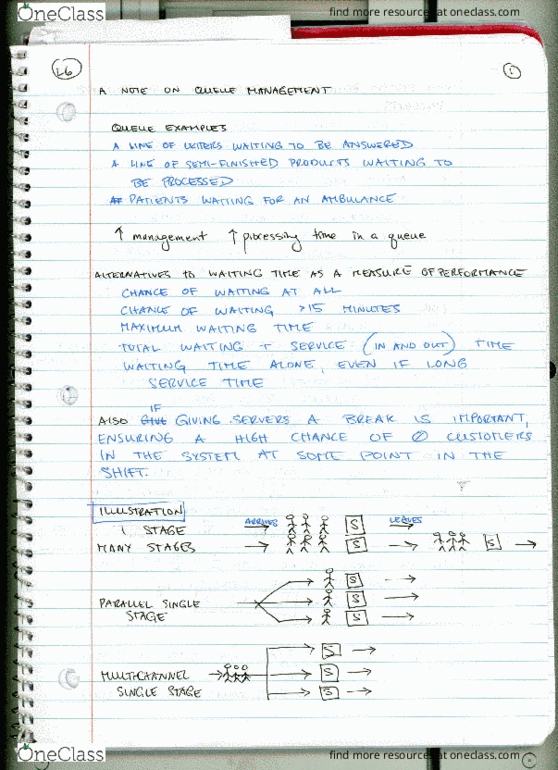 OneClass
find more resources at oneclass.com
L6
1
A NOTE ON QUEUE MANAGEMENT
QUEUE EXAMPLES
A LINE OF LETTERS WAITING TO BE ANSWERED
A LINE OF SEMI-FINISHED PRODUCTS WAITING TO
BE PROCESSED
PATIENTS WAITING FOR AN AMBULANCE
↑ management ↑ processing time in a queue
ALTERNATIVES TO WAITING TIME AS A MEASURE OF PERFORMANCE
CHANCE OF WAITING AT ALL
CHANCE OF WAITING >15 MINUTES
MAXIMUM WAITING TIME
TOTAL WAITING + SERVICE (IN AND OUT) TIME
WAITING TIME ALONE, EVEN IF LONG
SERVICE TIME
IF
ALSO GIVING SERVERS A BREAK IS IMPORTANT,
ENSURING A HIGH CHANCE OF 0 CUSTOMERS
IN THE SYSTEM AT SOME POINT IN THE
SHIFT.
ILLUSTRATION
1 STAGE ARRIVES S LEAVES
MANY STAGES S S
S
PARALLEL SINGLE S
STAGE S
S
MULTICHANNEL S
SINGLE STAGE S
OneClass
find more resources at oneclass.com